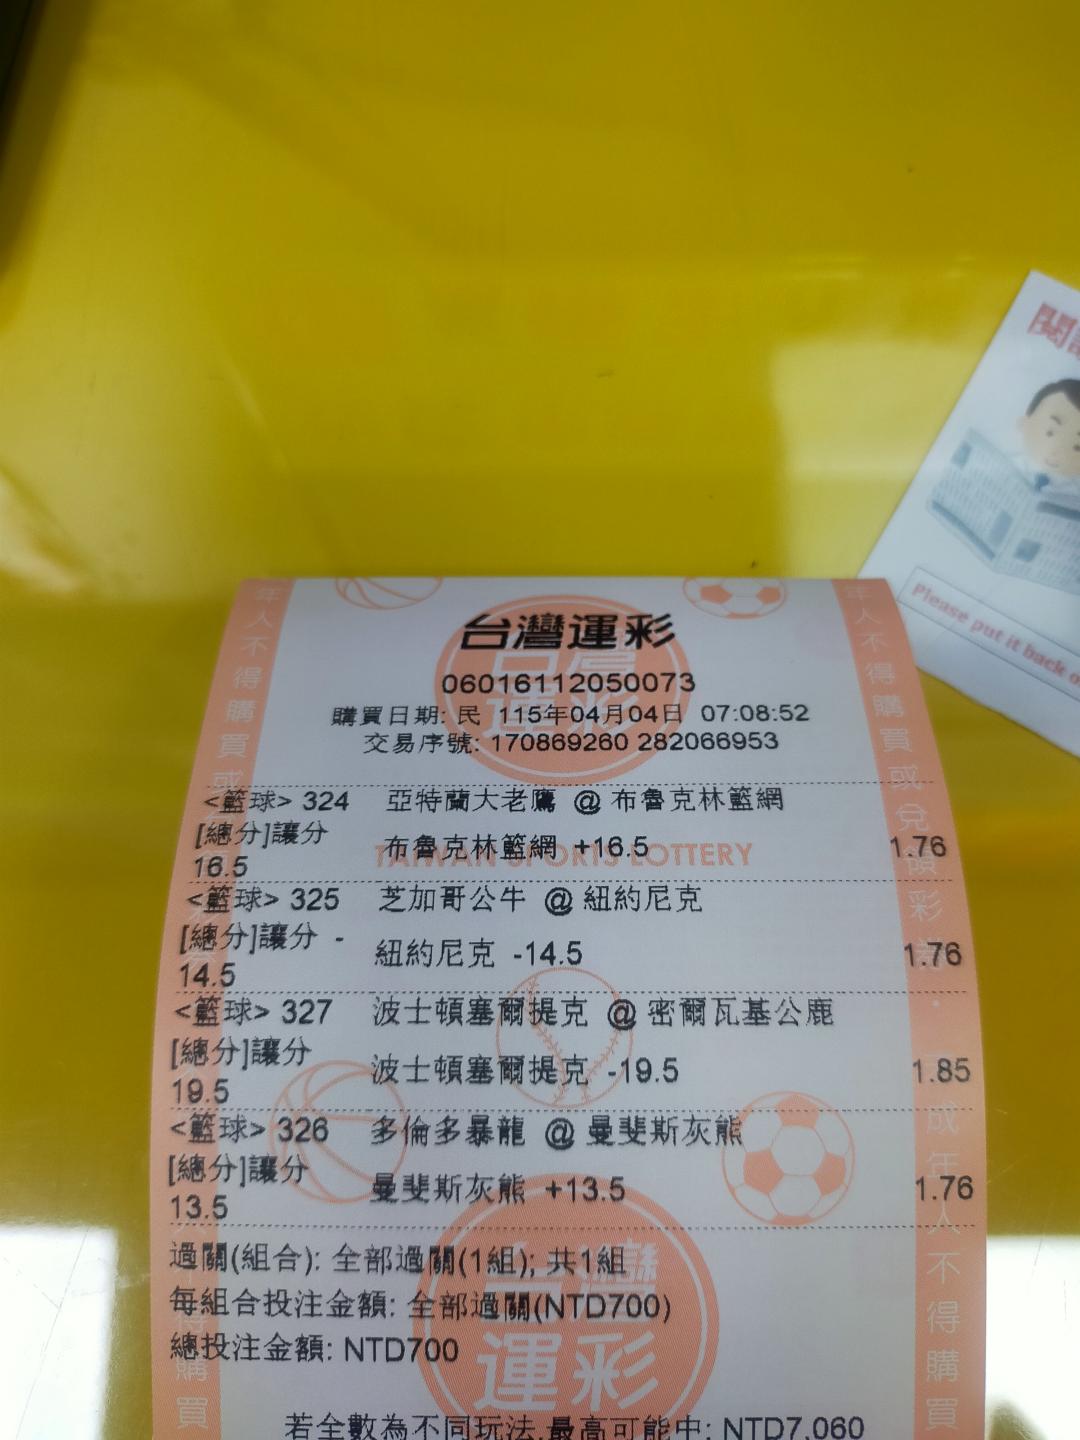 台灣運彩
06016112050073
購買日期: 民 115年04月04日 07:08:52
交易序號: 170869260 282066953
<籃球> 324 亞特蘭大老鷹 @ 布魯克林籃網
[總分]讓分 16.5 布魯克林籃網 +16.5 1.76
TAIWAN SPORTS LOTTERY
<籃球> 325 芝加哥公牛 @ 紐約尼克
[總分]讓分 -14.5 紐約尼克 -14.5 1.76
<籃球> 327 波士頓塞爾提克 @ 密爾瓦基公鹿
[總分]讓分 19.5 波士頓塞爾提克 -19.5 1.85
<籃球> 326 多倫多暴龍 @ 曼斐斯灰熊
[總分]讓分 13.5 曼斐斯灰熊 +13.5 1.76
過關(組合): 全部過關(1組); 共1組
每組合投注金額: 全部過關(NTD700)
總投注金額: NTD700
若全數為不同玩法,最高可能中: NTD7,060
台灣運彩
運彩
年人不得購買或
年人不得購買或兌領彩券.
成年人不得購買
得購買
閱讀
Please put it back